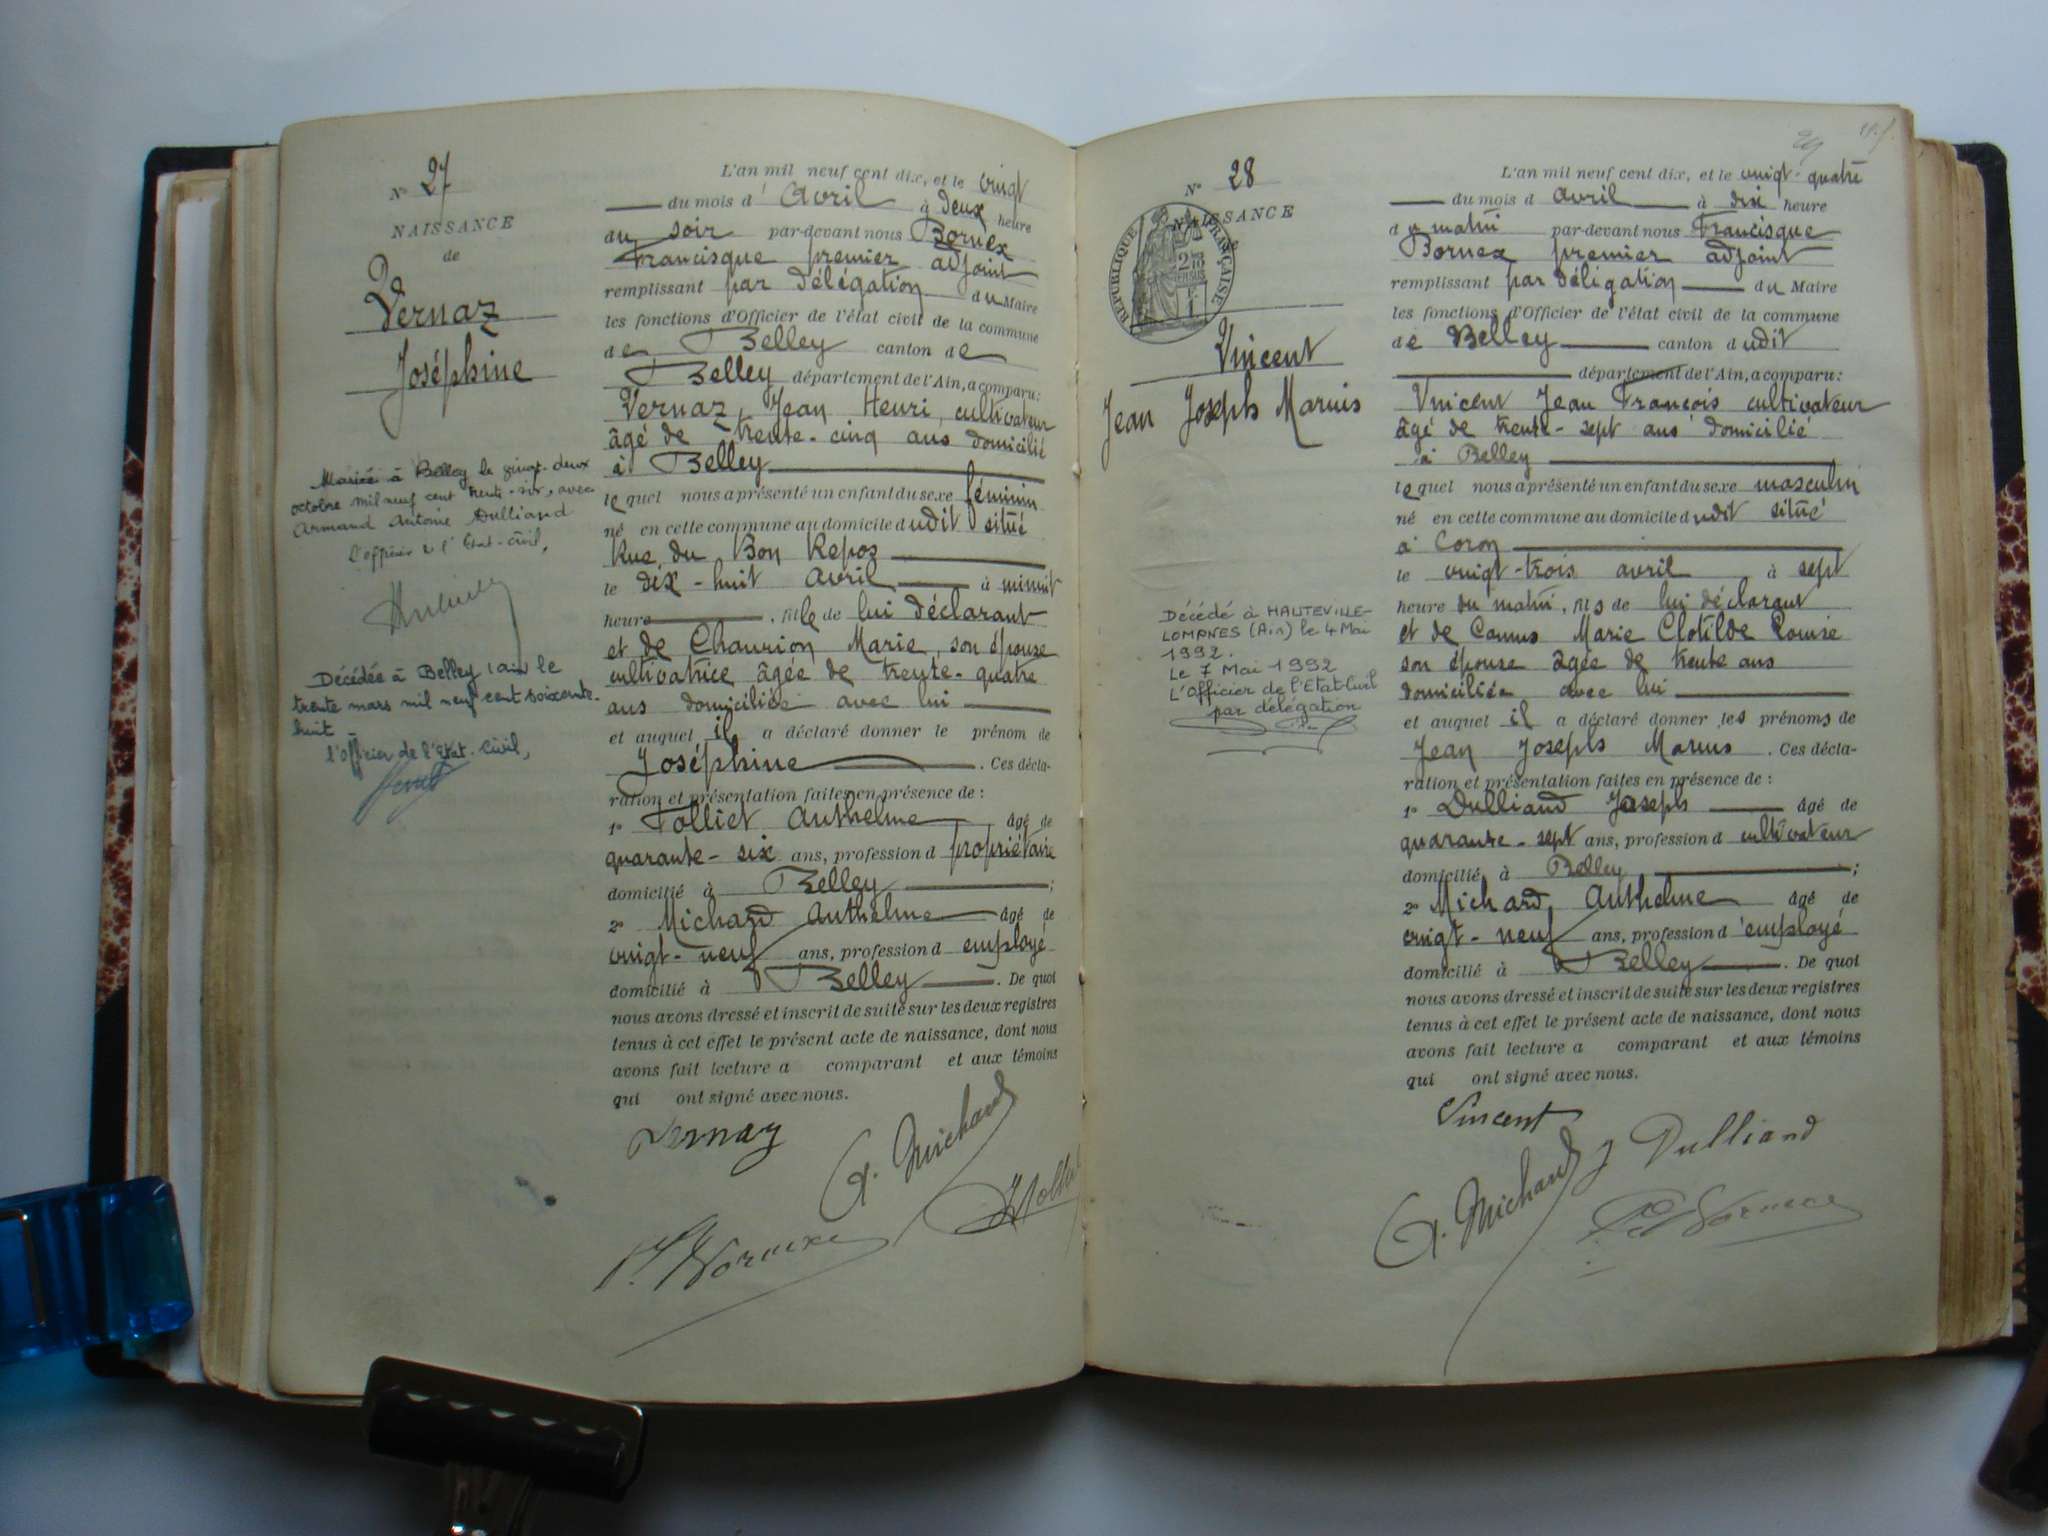 N° 27
NAISSANCE
de
Vernaz
Joséphine
Mariée à Belley le vingt-deux
octobre mil neuf cent trente-six, avec
Armand Antoine Dulliand
l'officier de l'Etat-civil,
Décédée à Belley (Ain) le
trente mars mil neuf cent soixante-
huit
l'officier de l'Etat-Civil,
L'an mil neuf cent dix, et le vingt
du mois d'Avril à deux heure
du soir par-devant nous Bornex
Francisque premier adjoint
remplissant par délégation du Maire
les fonctions d'Officier de l'état civil de la commune
de Belley canton de
Belley département de l'Ain, a comparu:
Vernaz, Jean Henri, cultivateur
âgé de trente-cinq ans domicilié
à Belley
lequel nous a présenté un enfant du sexe féminin
né en cette commune au domicile dudit situé
Rue du Bon Repos
le dix-huit avril à minuit
heure , fille de lui déclarant
et de Marie, son épouse
cultivatrice âgée de trente-quatre
ans domiciliée avec lui
et auquel il a déclaré donner le prénom de
Joséphine . Ces décla-
ration et présentation faites en présence de :
1° Folliet Anthelme âgé de
quarante-six ans, profession d propriétaire
domicilié à Belley ;
2° Michard Anthelme âgé de
vingt-neuf ans, profession d employé
domicilié à Belley . De quoi
nous avons dressé et inscrit de suite sur les deux registres
tenus à cet effet le présent acte de naissance, dont nous
avons fait lecture a comparant et aux témoins
qui ont signé avec nous.
Vernaz
A. Michard
F. Bornex
N° 28
NAISSANCE
RÉPUBLIQUE FRANÇAISE
Vincent
Jean Joseph Marius
Décédé à HAUTEVILLE-
LOMPNES (Ain) le 4 Mai
1992.
Le 7 Mai 1992
L'Officier de l'Etat-Civil
par délégation
L'an mil neuf cent dix, et le vingt-quatre
du mois d avril à dix heure
du matin par-devant nous Francisque
Bornex premier adjoint
remplissant par délégation du Maire
les fonctions d'Officier de l'état civil de la commune
de Belley canton dudit
département de l'Ain, a comparu:
Vincent Jean François cultivateur
âgé de trente-sept ans domicilié
à Belley
lequel nous a présenté un enfant du sexe masculin
né en cette commune au domicile dudit situé
à Coron
le vingt-trois avril à sept
heure du matin, fils de lui déclarant
et de Camus Marie Clotilde Louise
son épouse âgée de trente ans
domiciliée avec lui
et auquel il a déclaré donner les prénoms de
Jean Joseph Marius . Ces décla-
ration et présentation faites en présence de :
1° Dulliand Joseph âgé de
quarante-sept ans, profession d cultivateur
domicilié à Belley ;
2° Michard Anthelme âgé de
vingt-neuf ans, profession d'employé
domicilié à Belley . De quoi
nous avons dressé et inscrit de suite sur les deux registres
tenus à cet effet le présent acte de naissance, dont nous
avons fait lecture a comparant et aux témoins
qui ont signé avec nous.
Vincent
J Dulliand
A. Michard